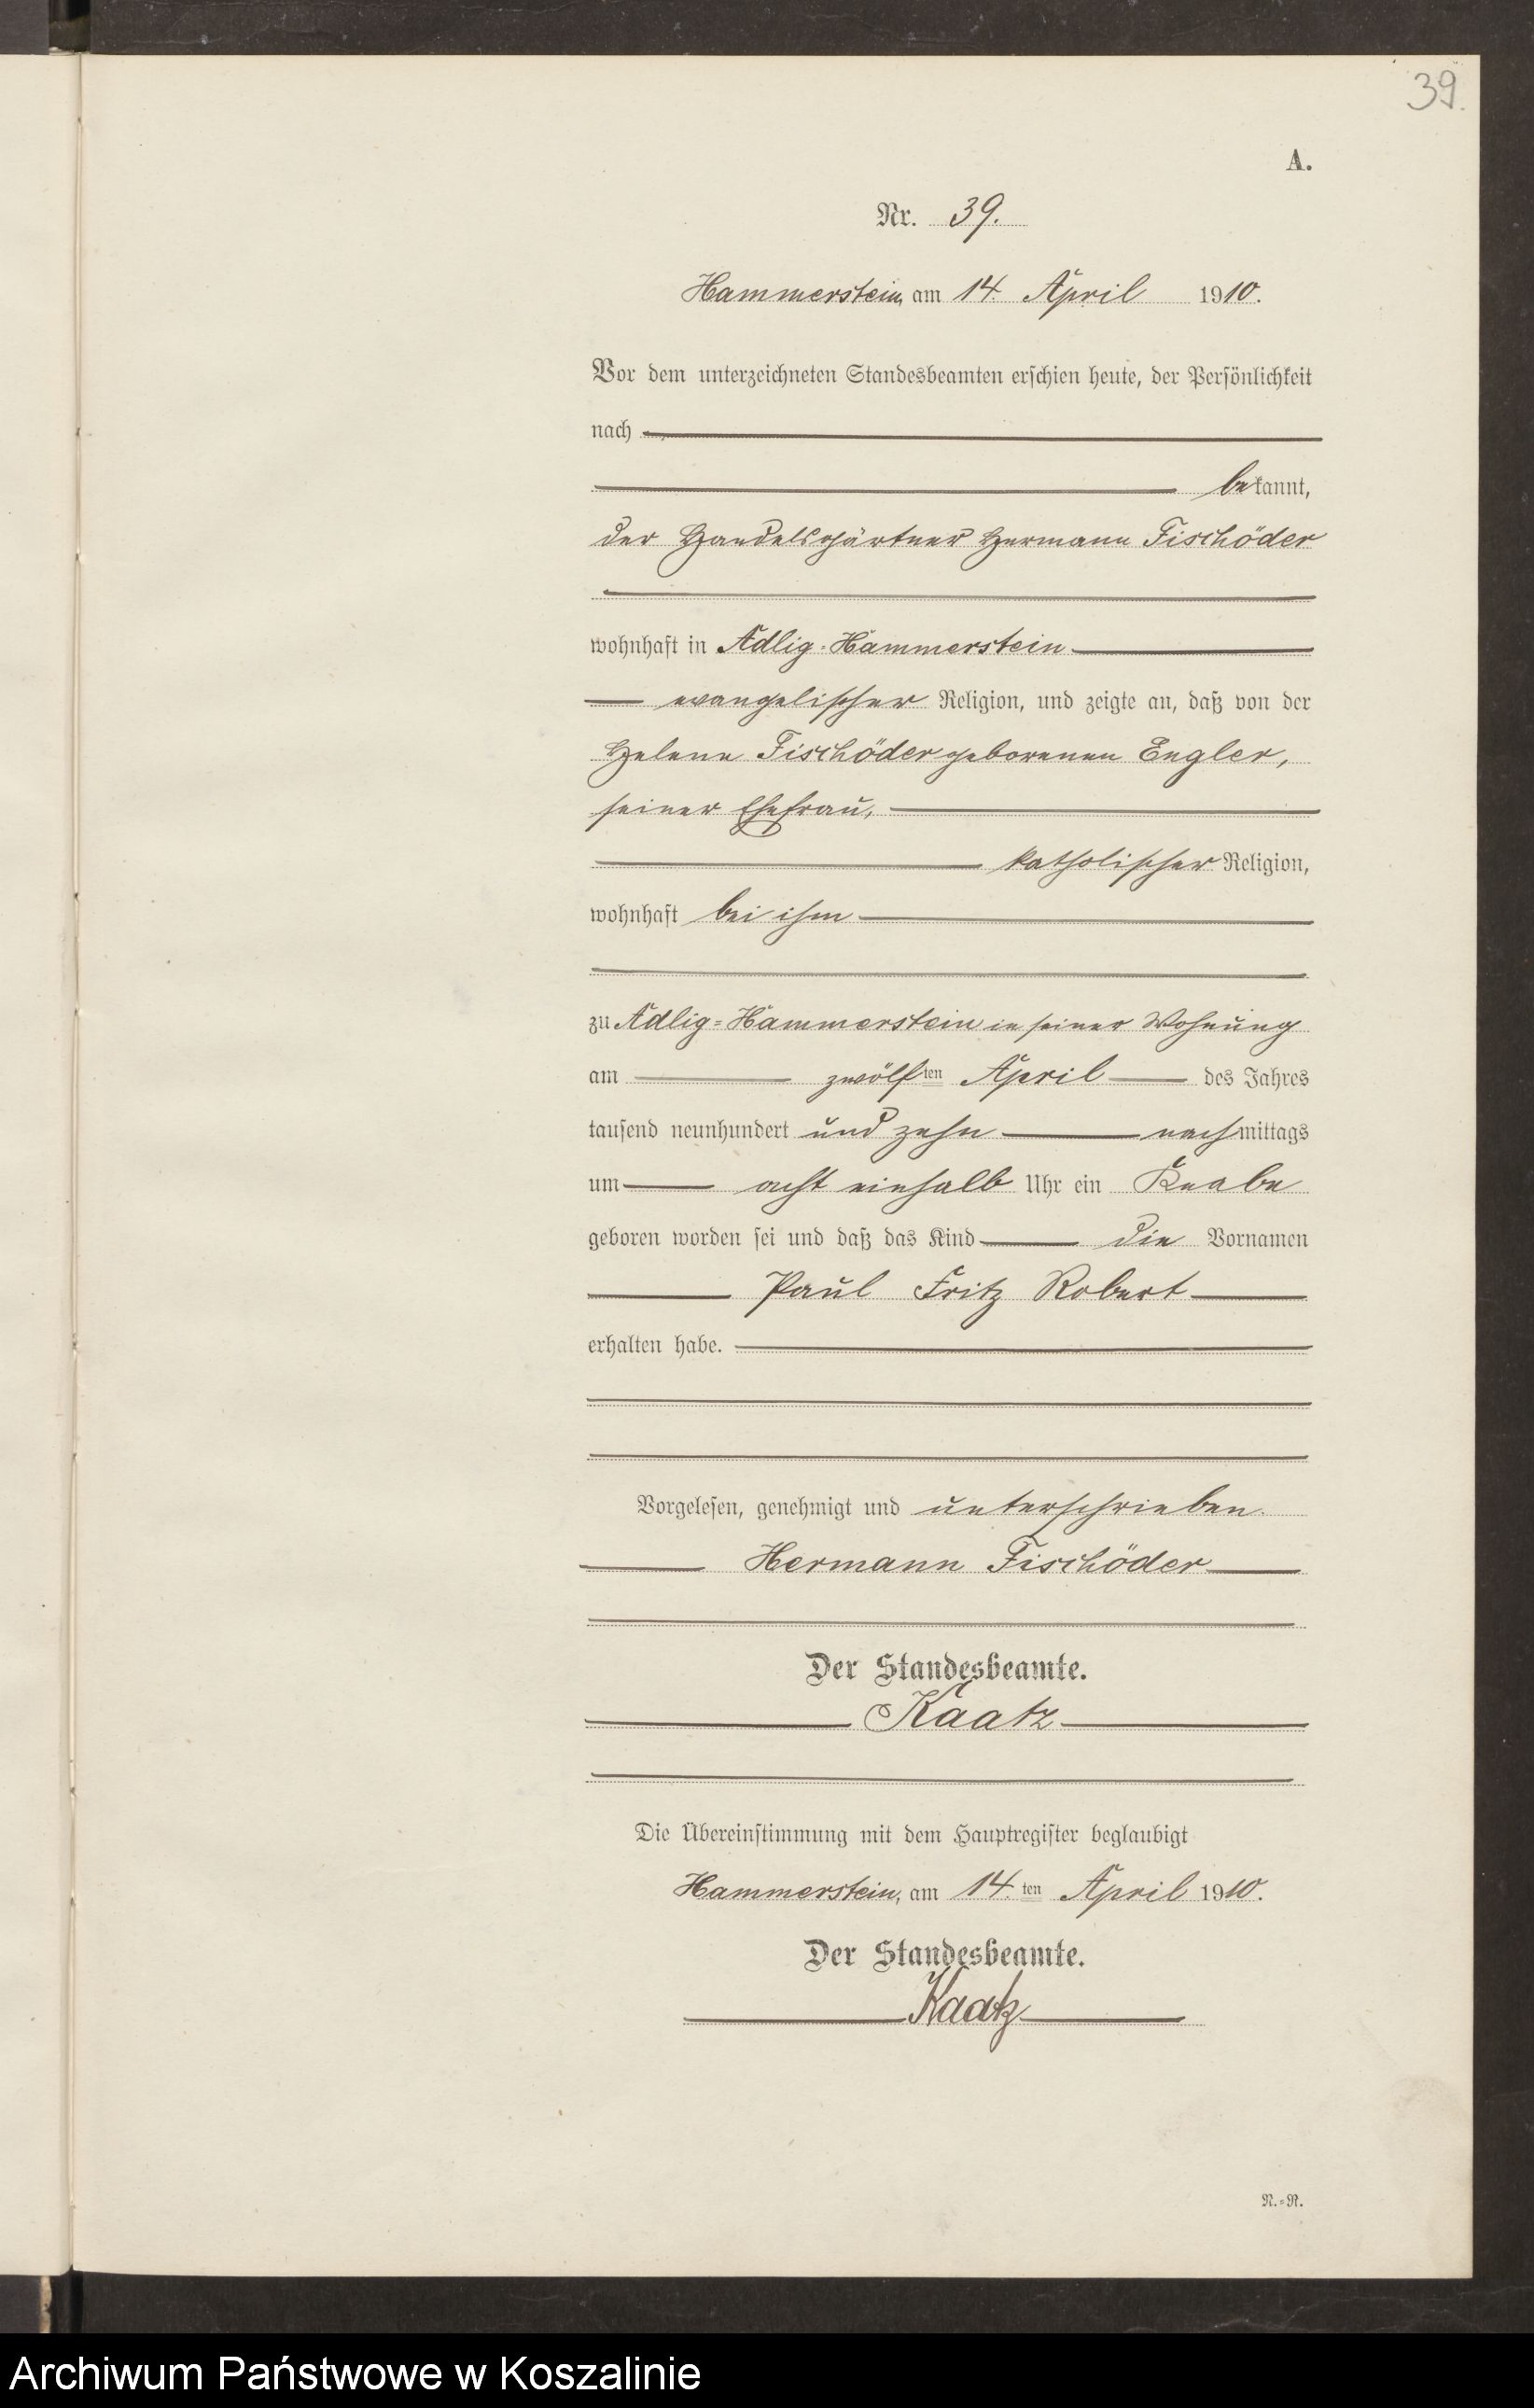 39.
A.
Nr. 39.
Hammerstein, am 14. April 1910.
Vor dem unterzeichneten Standesbeamten erschien heute, der Persönlichkeit
nach
bekannt,
der Handelsgärtner Hermann Fischöder
wohnhaft in Adlig-Hammerstein
evangelischer Religion, und zeigte an, daß von der
Helene Fischöder geborenen Engler,
seiner Ehefrau,
katholischer Religion,
wohnhaft bei ihm
zu Adlig-Hammerstein in seiner Wohnung
am zwölften April des Jahres
tausend neunhundert und zehn nachmittags
um acht einhalb Uhr ein Knabe
geboren worden sei und daß das Kind die Vornamen
Paul Fritz Robert
erhalten habe.
Vorgelesen, genehmigt und unterschrieben.
Hermann Fischöder
Der Standesbeamte.
Kaatz
Die Übereinstimmung mit dem Hauptregister beglaubigt
Hammerstein, am 14.ten April 1910.
Der Standesbeamte.
Kaatz
N.=R.
Archiwum Państwowe w Koszalinie